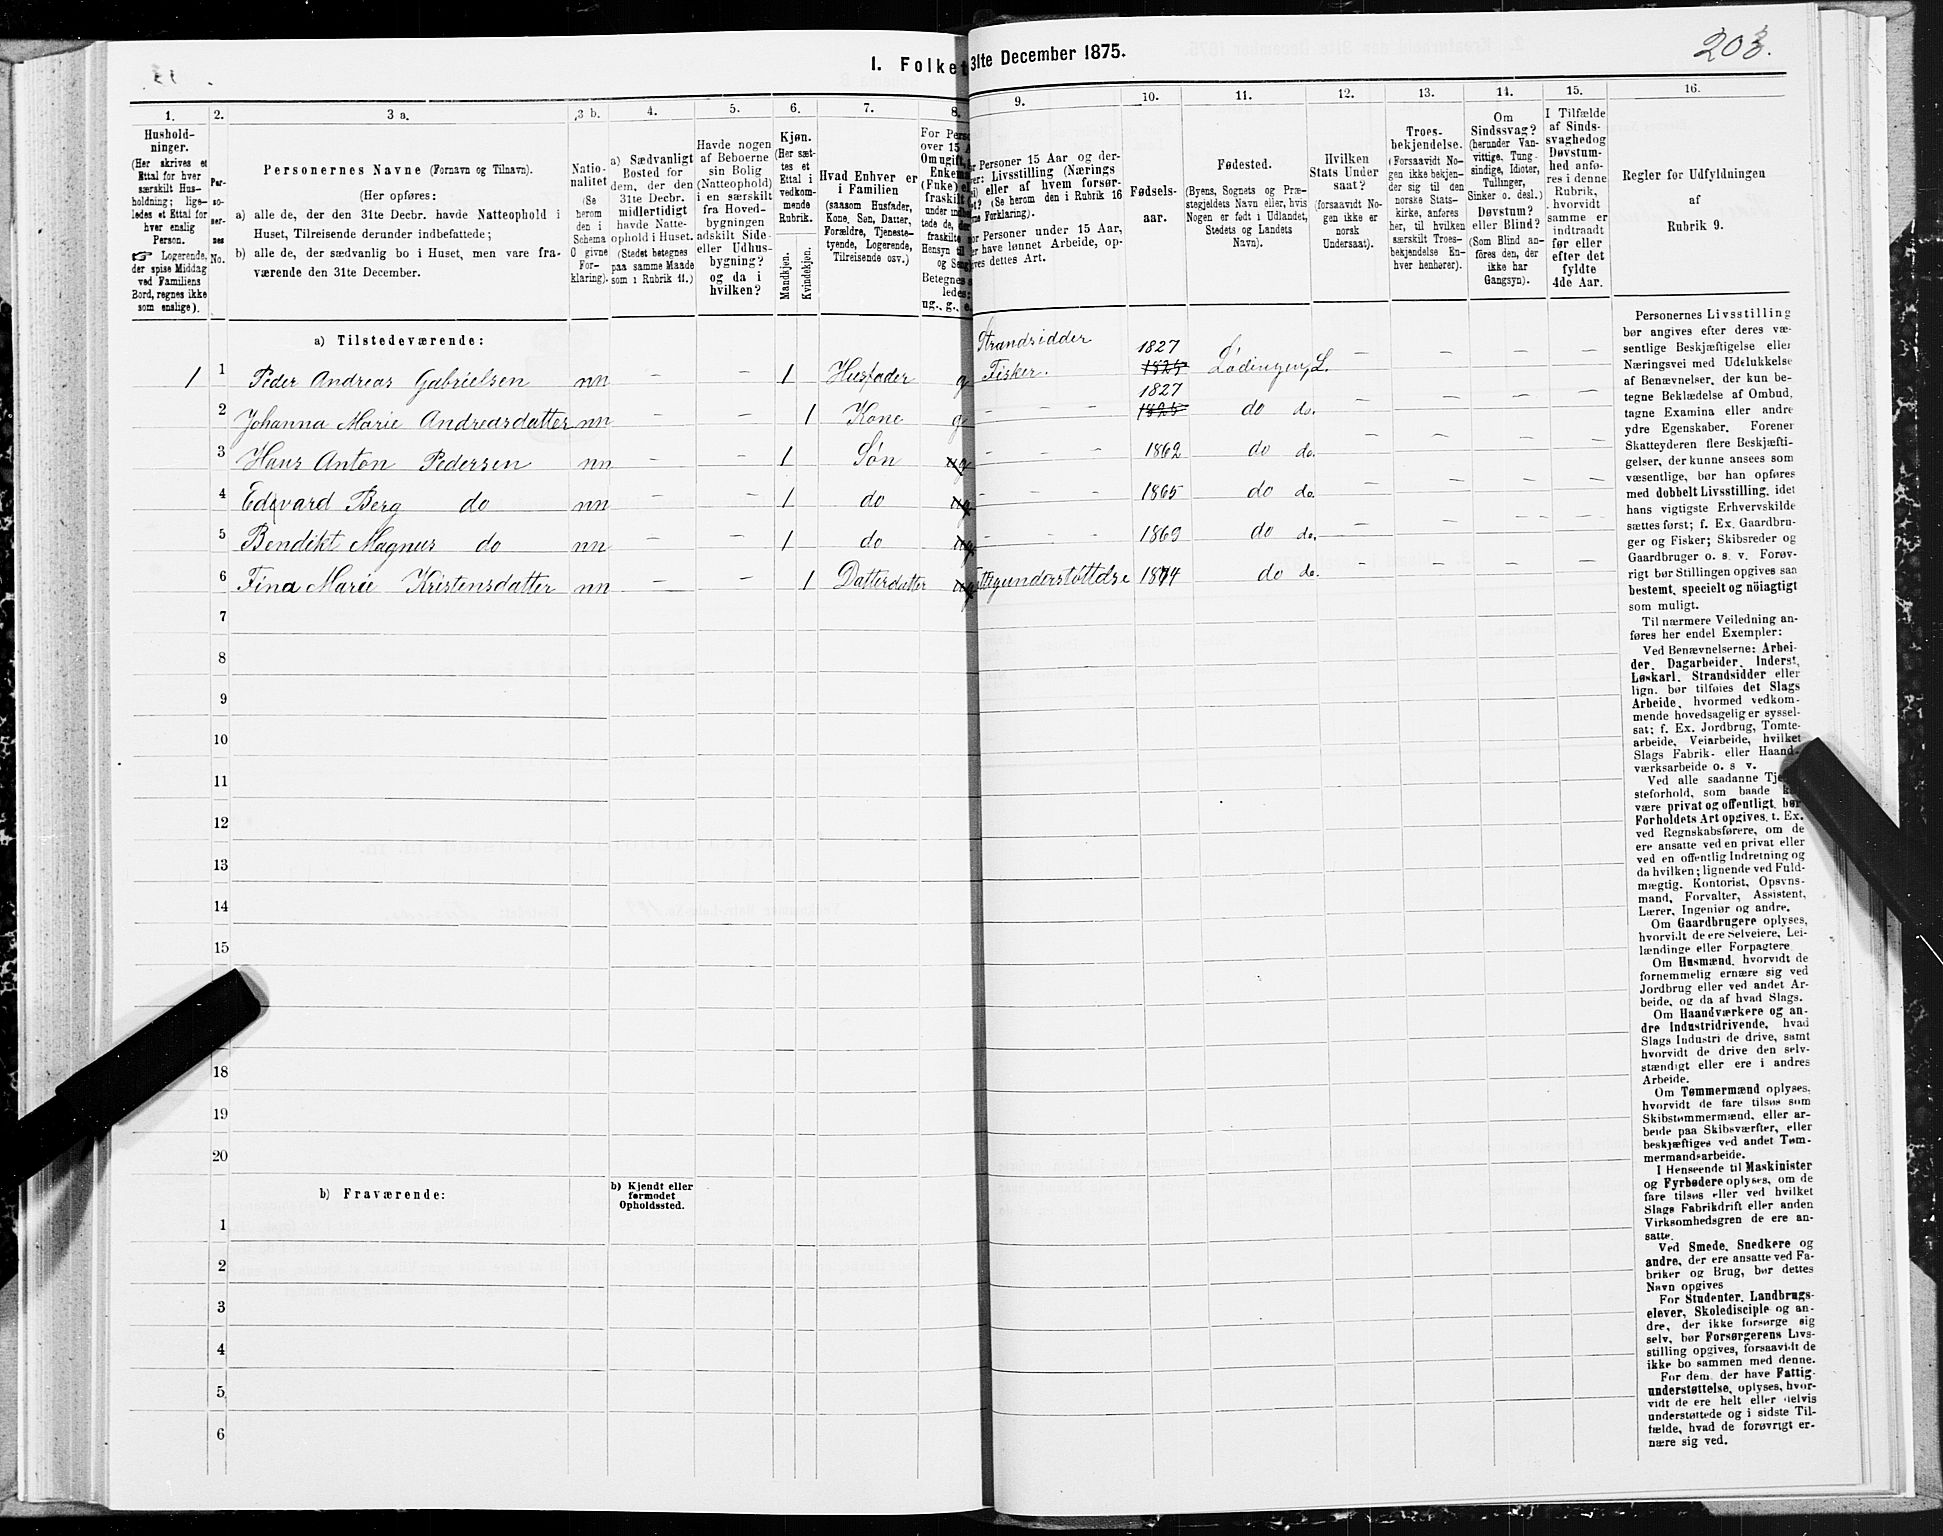 I. Folket
31te December 1875.
203.
1. 2. 3 a. 3 b. 4. 5. 6. 7. 8. 9. 10. 11. 12. 13. 14. 15. 16.
Hushold-
ninger.
(Her skrives et
Ettal for hver
særskilt Hus-
holdning; lige-
ledes et Ettal for
hver enslig
Person.
☞ Logerende,
der spise Middag
ved Familiens
Bord, regnes ikke
som enslige).
Per-
so-
ner-
nes
No.
Personernes Navne (Fornavn og Tilnavn).
(Her opføres:
a) alle de, der den 31te Decbr. havde Natteophold i
Huset, Tilreisende derunder indbefattede;
b) alle de, der sædvanlig bo i Huset, men vare fra-
værende den 31te December.
Natio-
nalitet
(Se
herom
den i
Schema
O givne
For-
klaring).
a) Sædvanligt
Bosted for
dem, der den
31te Decbr.
midlertidigt
havde Natte-
ophold i Huset.
(Stedet betegnes
paa samme Maade
som i Rubrik 11.)
Havde nogen
af Beboerne
sin Bolig
(Natteophold)
i en særskilt
fra Hoved-
bygningen
adskilt Side-
eller Udhus-
bygning?
og da i
hvilken?
Kjøn.
(Her sæt-
tes et
Ettal i
vedkom-
mende
Rubrik.
Mandkjøn.
Kvindekjøn.
Hvad Enhver er
i Familien
(saasom Husfader,
Kone, Søn, Datter,
Forældre, Tjeneste-
tyende, Logerende,
Tilreisende osv.)
For Perso
over 15 A
Om ugift,
Enkema
(Enke) e
fraskilt
under indbe
tede de, de
fraskilte
Hensyn til
og Seng
Betegnes s
ledes:
ug., g., e.
Personer 15 Aar og der-
over: Livsstilling (Nærings
vei) eller af hvem forsør-
get? (Se herom den i Rubrik 16
givne Forklaring).
Personer under 15 Aar,
der have lønnet Arbeide, op-
gives dettes Art.
Fødsels-
aar.
Fødested.
(Byens, Sognets og Præ-
stegjeldets Navn eller, hvis
Nogen er født i Udlandet,
Stedets og Landets
Navn).
Hvilken
Stats Under
saat?
(forsaavidt No-
gen ikke er
norsk
Undersaat).
Troes-
bekjendelse.
(Forsaavidt No-
gen ikke bekjen-
der sig til den
norske Stats-
kirke, anføres
her, til hvilken
særskilt Troes-
bekjendelse En-
hver henhører).
Om
Sindssvag?
(herunder Van-
vittige, Tung-
sindige, Idioter,
Tullinger,
Sinker o. desl.)
Døvstum?
eller Blind?
(Som Blind an-
føres den, der
ikke har
Gangsyn).
I Tilfælde
af Sinds-
svaghed og
Døvstum-
hed anfø-
res i denne
Rubrik,
hvorvidt
samme er
indtraadt
før eller
efter det
fyldte
4de Aar.
Regler for Udfyldningen
af
Rubrik 9.
a) Tilstedeværende:
1 1 Peder Andreas Gabrielsen nn — — 1 Husfader g Strandsidder Fisker. 1827 1825 Lødingen, L. — — — —
2 Johanna Marie Andreasdatter nn — — 1 Kone g — — — 1827 1825 do do. — — — —
3 Hans Anton Pedersen nn — — 1 Søn ug — — — 1862 do do. — — — —
4 Edevard Berg do nn — — 1 do ug — — — 1865 do do. — — — —
5 Bendikt Magnus do nn — — 1 do ug — — — 1869 do do. — — — —
6 Fina Marie Kristensdatter nn — — 1 Datterdatter ug Fattigunderstøttelse 1874 do do. — — — —
7
8
9
10
11
12
13
14
15
18
19
20
b) Fraværende:
b) Kjendt eller
formodet
Opholdssted.
1
2
3
4
5
6
Personernes Livsstilling
bør angives efter deres væ-
sentlige Beskjæftigelse eller
Næringsvei med Udelukkelse
af Benævnelser, der kun be-
tegne Beklædelse af Ombud,
tagne Examina eller andre
ydre Egenskaber. Forener
Skatteyderen flere Beskjæfti-
gelser, der kunne ansees som
væsentlige, bør han opføres
med dobbelt Livsstilling, idet
hans vigtigste Erhvervskilde
sættes først; f. Ex. Gaardbru-
ger og Fisker; Skibsreder og
Gaardbruger o. s. v. Forøv-
rigt bør Stillingen opgives saa
bestemt, specielt og nöiagtigt
som muligt.
Til nærmere Veiledning an-
føres her endel Exempler:
Ved Benævnelserne: Arbei-
der, Dagarbeider, Inderst,
Løskarl, Strandsidder eller
lign. bør tilføies det Slags
Arbeide, hvormed vedkom-
mende hovedsagelig er syssel-
sat; f. Ex. Jordbrug, Tomte-
arbeide, Veiarbeide, hvilket
Slags Fabrik- eller Haand-
værksarbeide o. s v.
Ved alle saadanne Tje-
steforhold, som baade k
være privat og offentligt, bør
Forholdets Art opgives, t. Ex.
ved Regnskabsførere, om de
ere ansatte ved en privat eller
ved en offentlig Indretning og
da hvilken; lignende ved Fuld-
mægtig, Kontorist, Opsyns-
mand, Forvalter, Assistent,
Lærer, Ingeniør og andre.
Om Gaardbrugere oplyses,
hvorvidt de ere Selveiere, Lei-
lændinge eller Forpagtere
Om Husmænd, hvorvidt de
fornemmelig ernære sig ved
Jordbrug eller ved andet Ar-
beide, og da af hvad Slags.
Om Haandværkere og an-
dre Industridrivende, hvad
Slags Industri de drive, samt
hvorvidt de drive den selv-
stændigt eller ere i andres
Arbeide.
Om Tømmermænd oplyses,
hvorvidt de fare tilsøs som
Skibstømmermænd, eller ar-
beide paa Skibsværfter, eller
beskjæftiges ved andet Tøm-
mermandsarbeide.
I Henseende til Maskinister
og Fyrbødere oplyses, om de
fare tilsøs eller ved hvilket
Slags Fabrikdrift eller anden
Virksomhedsgren de ere an-
satte.
Ved Smede, Snedkere og
andre, der ere ansatte ved Fa-
briker og Brug, bør dettes
Navn opgives
For Studenter, Landbrugs-
elever, Skoledisciple og an-
dre, der ikke forsørge sig
selv, bør Forsørgerens Livs-
stilling opgives, forsaavidt de
ikke bo sammen med denne.
For dem, der have Fattig-
understøttelse, oplyses, hvor-
vidt de ere helt eller delvis
understøttede og i sidste Til-
fælde, hvad de forøvrigt er-
nære sig ved.